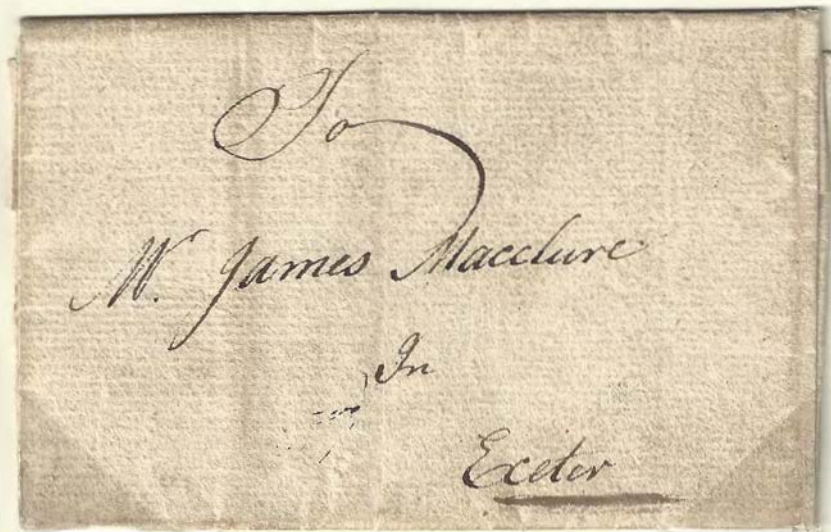 To
Mr. James Macclure
In
Exeter